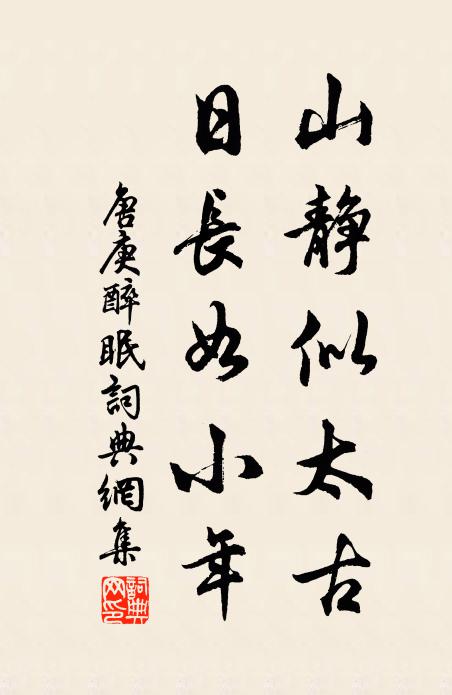 山靜似太古
日長如小年
唐庚醉眠詞典網集
詞典
网印